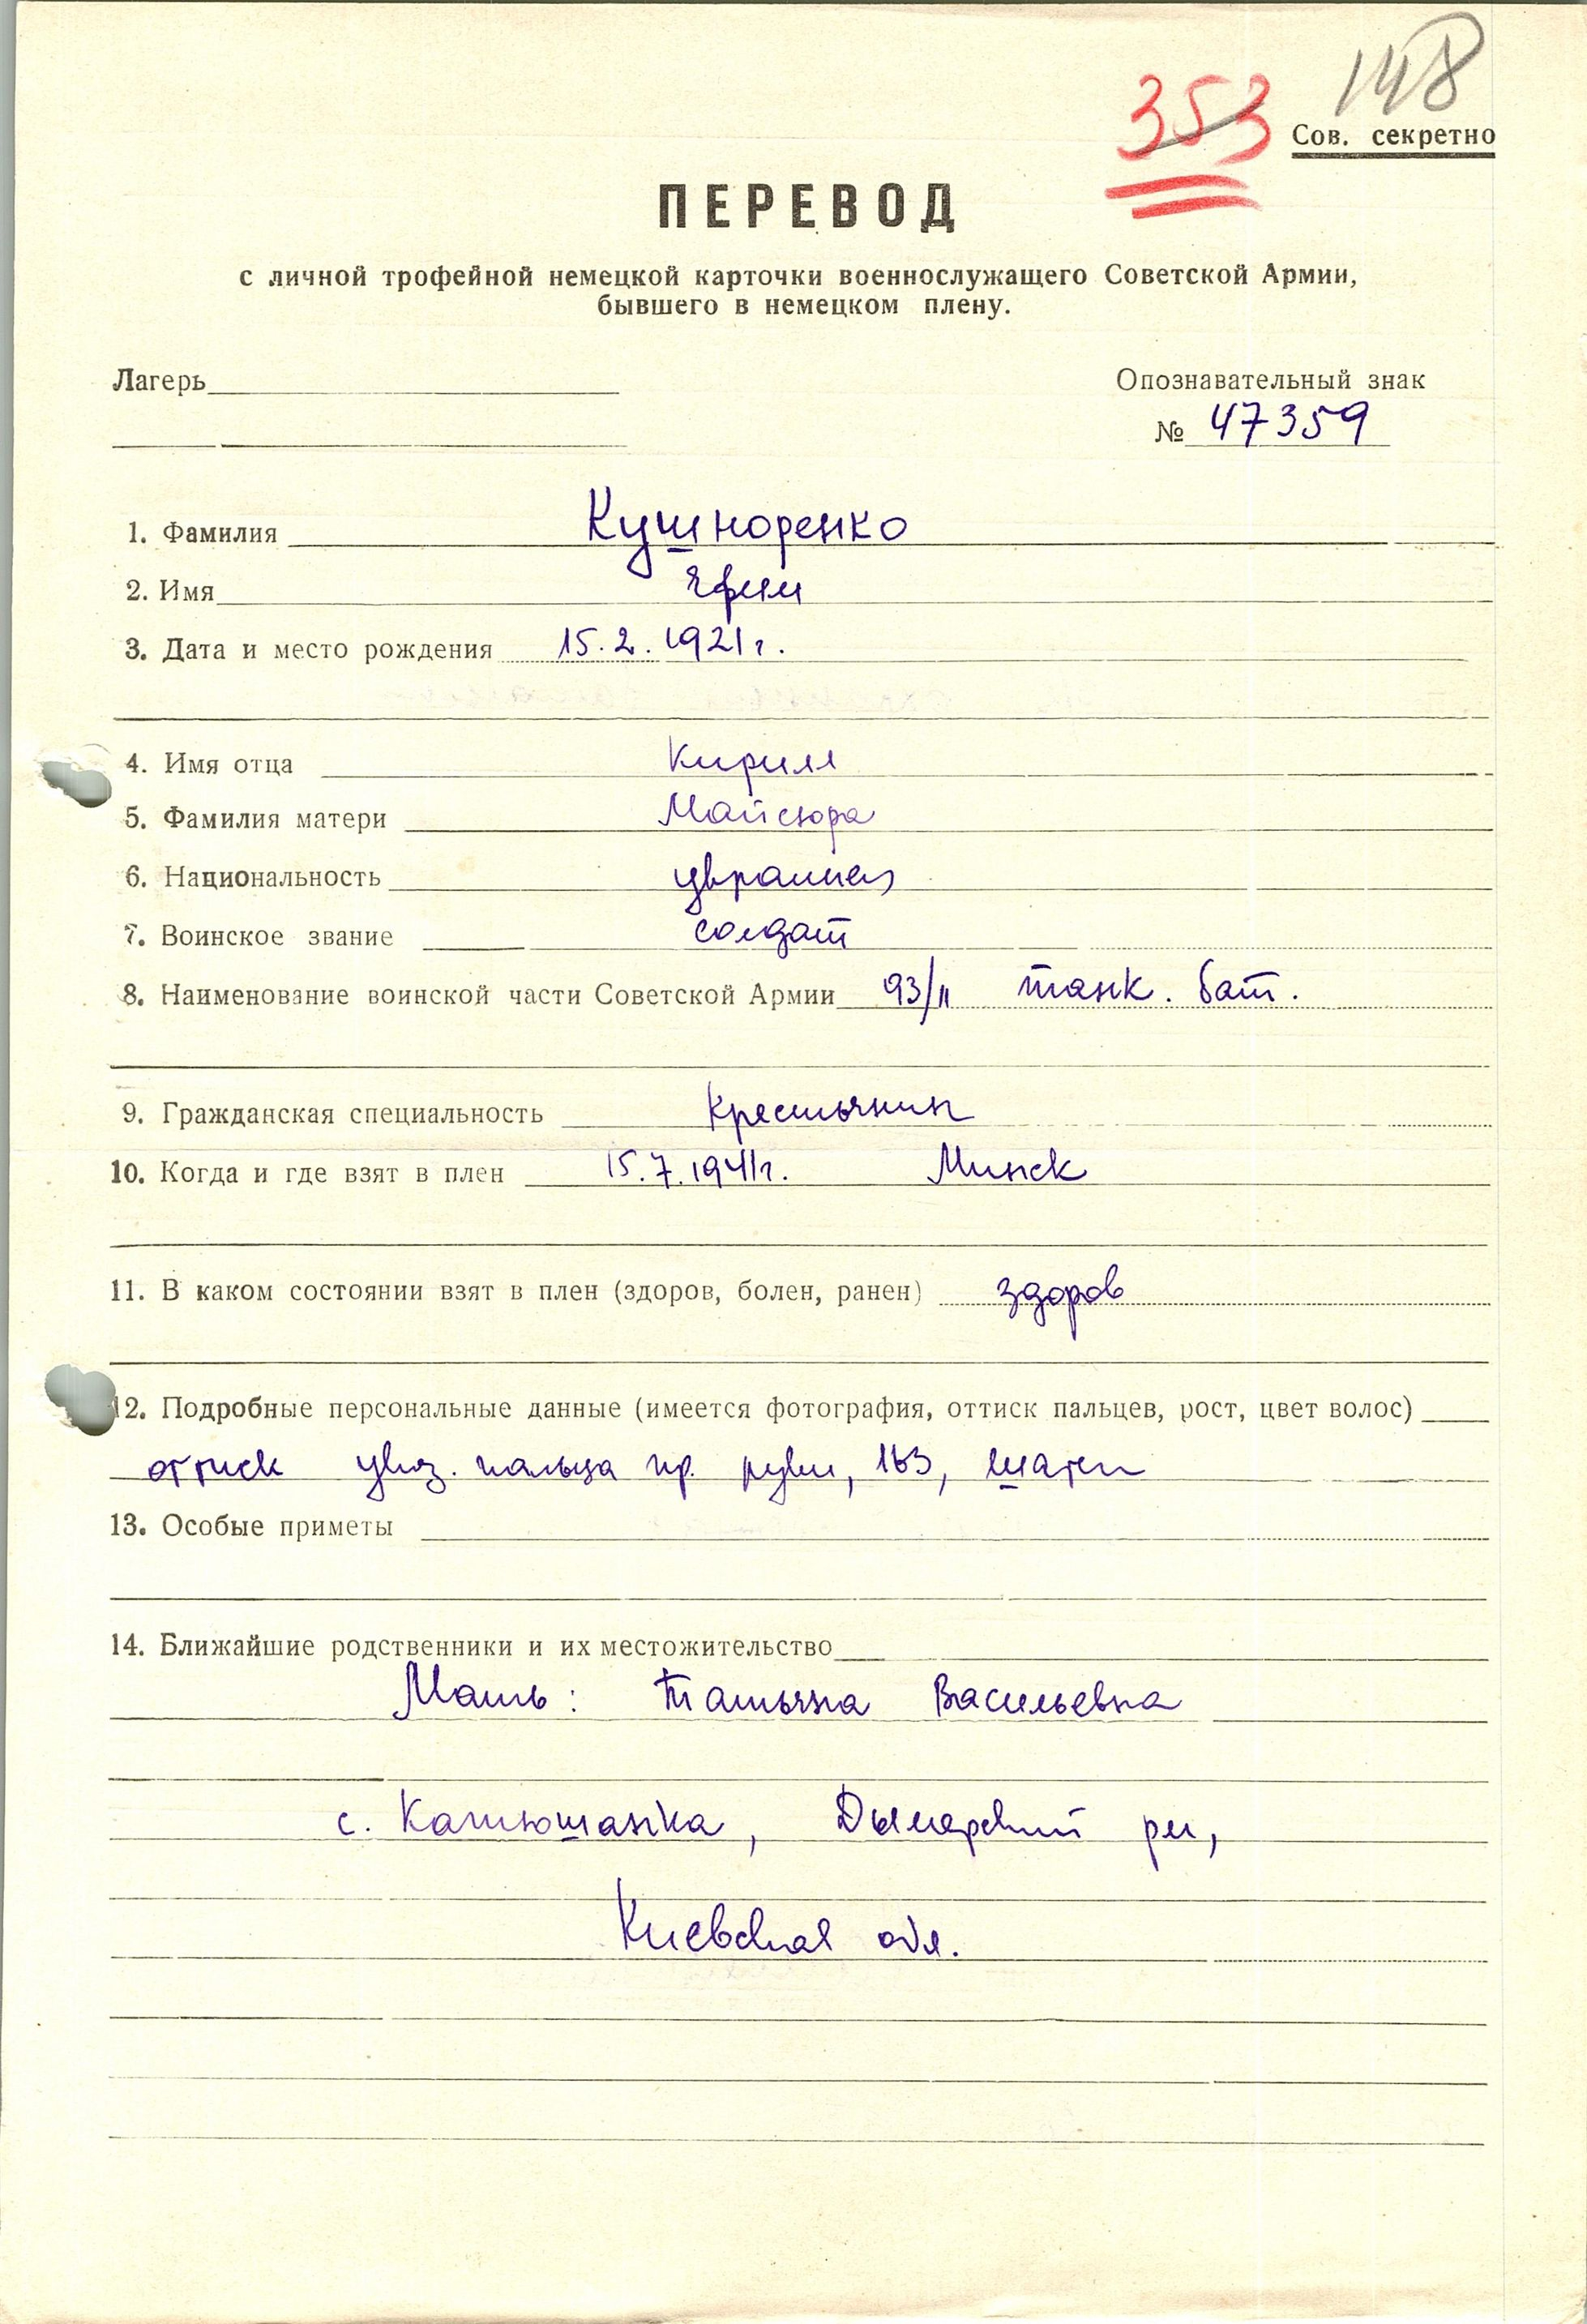 148
353
Сов. секретно
ПЕРЕВОД
с личной трофейной немецкой карточки военнослужащего Советской Армии,
бывшего в немецком плену.
Лагерь
Опознавательный знак
№ 47359
1. Фамилия Кушноренко
2. Имя Ефим
3. Дата и место рождения 15.2.1921г.
4. Имя отца Кирилл
5. Фамилия матери Майсюра
6. Национальность украинец
7. Воинское звание солдат
8. Наименование воинской части Советской Армии 93/II танк. бат.
9. Гражданская специальность Крестьянин
10. Когда и где взят в плен 15.7.1941г. Минск
11. В каком состоянии взят в плен (здоров, болен, ранен) здоров
12. Подробные персональные данные (имеется фотография, оттиск пальцев, рост, цвет волос)
оттиск указ. пальца пр. руки, 163, шатен
13. Особые приметы
14. Ближайшие родственники и их местожительство
Мать: Татьяна Васильевна
с. Катюшанка, Дымерский рн,
Киевская обл.